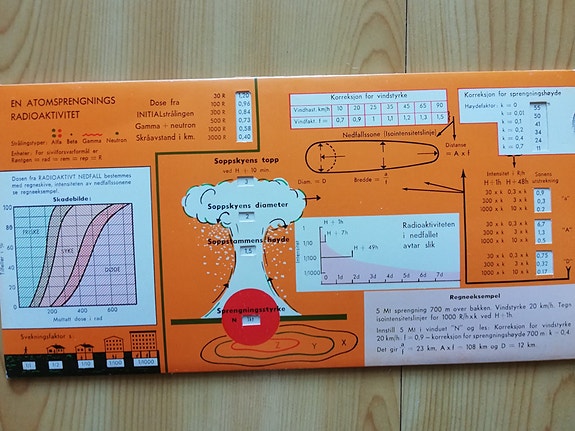 EN ATOMSPRENGNINGS
RADIOAKTIVITET
Strålingstyper: Alfa Beta Gamma Neutron
Enheter: For sivilforsvarformål er
Röntgen = rad = rem = rep = R
Dose fra
INITIALstrålingen
Gamma + neutron
Skråavstand i km.
30 R 1,20
100 R 0,96
300 R 0,84
300 R 0,73
1000 R 0,58
3000 R 0,40
Dosen fra RADIOAKTIVT NEDFALL bestemmes
med regneskive, intensiteten av nedfallssonene
se regneeksempel.
Skadebilde:
100
80
60
40
20
0
FRISKE
SYKE
DØDE
200 400 600
Mottatt dose i rad
Svekningsfaktor s:
1/1 1/2 1/10 1/100 1/1000
Soppskyens topp
ved H + 10 min.
Soppskyens diameter
Soppstammens høyde
1,5
Sprengningsstyrke
N
Z Y X
Korreksjon for vindstyrke
Vindhast. km/h 10 20 25 35 45 65 90
Vindfakt. f = 0,7 0,9 1 1,1 1,2 1,3 1,5
Nedfallssone (Isointensitetslinje)
Distanse
= A x f
Diam. = D
Bredde = a/f
Korreksjon for sprengningshøyde
Høydefaktor: k = 0 55
k = 0,01 50
k = 0,1 41
k = 0,2 34
k = 0,4 24
k = 0,7 11
Intensitet i R/h
H + 1h H + 48h
Sonens
utstrekning
30 x k 0,3 x k 0,9
100 x k 1 x k 0,3
30 x k 0,3 x k 6,7
100 x k 1 x k 1,3
300 x k 3 x k 0,5
"A"
30 x k 0,3 x k 0,75
100 x k 1 x k 0,32
0,17
"D"
H + 1h
H + 7h
H + 49h
Radioaktiviteten
i nedfallet
avtar slik
Intensitet
1/10
1/100
1/1000
0 1d 2d 3d 4d 5d 6d 7d
Regneeksempel
5 Mt sprengning 700 m over bakken. Vindstyrke 20 km/h. Tegn
isointensitetslinjer for 1000 R/h x k ved H + 1h.
Innstill 5 Mt i vinduet "N" og les: Korreksjon for vindstyrke
20 km/h: f = 0,9 – korreksjon for sprengningshøyde 700 m: k = 0,4.
Det gir a/f = 23 km, A x f = 108 km og D = 12 km.